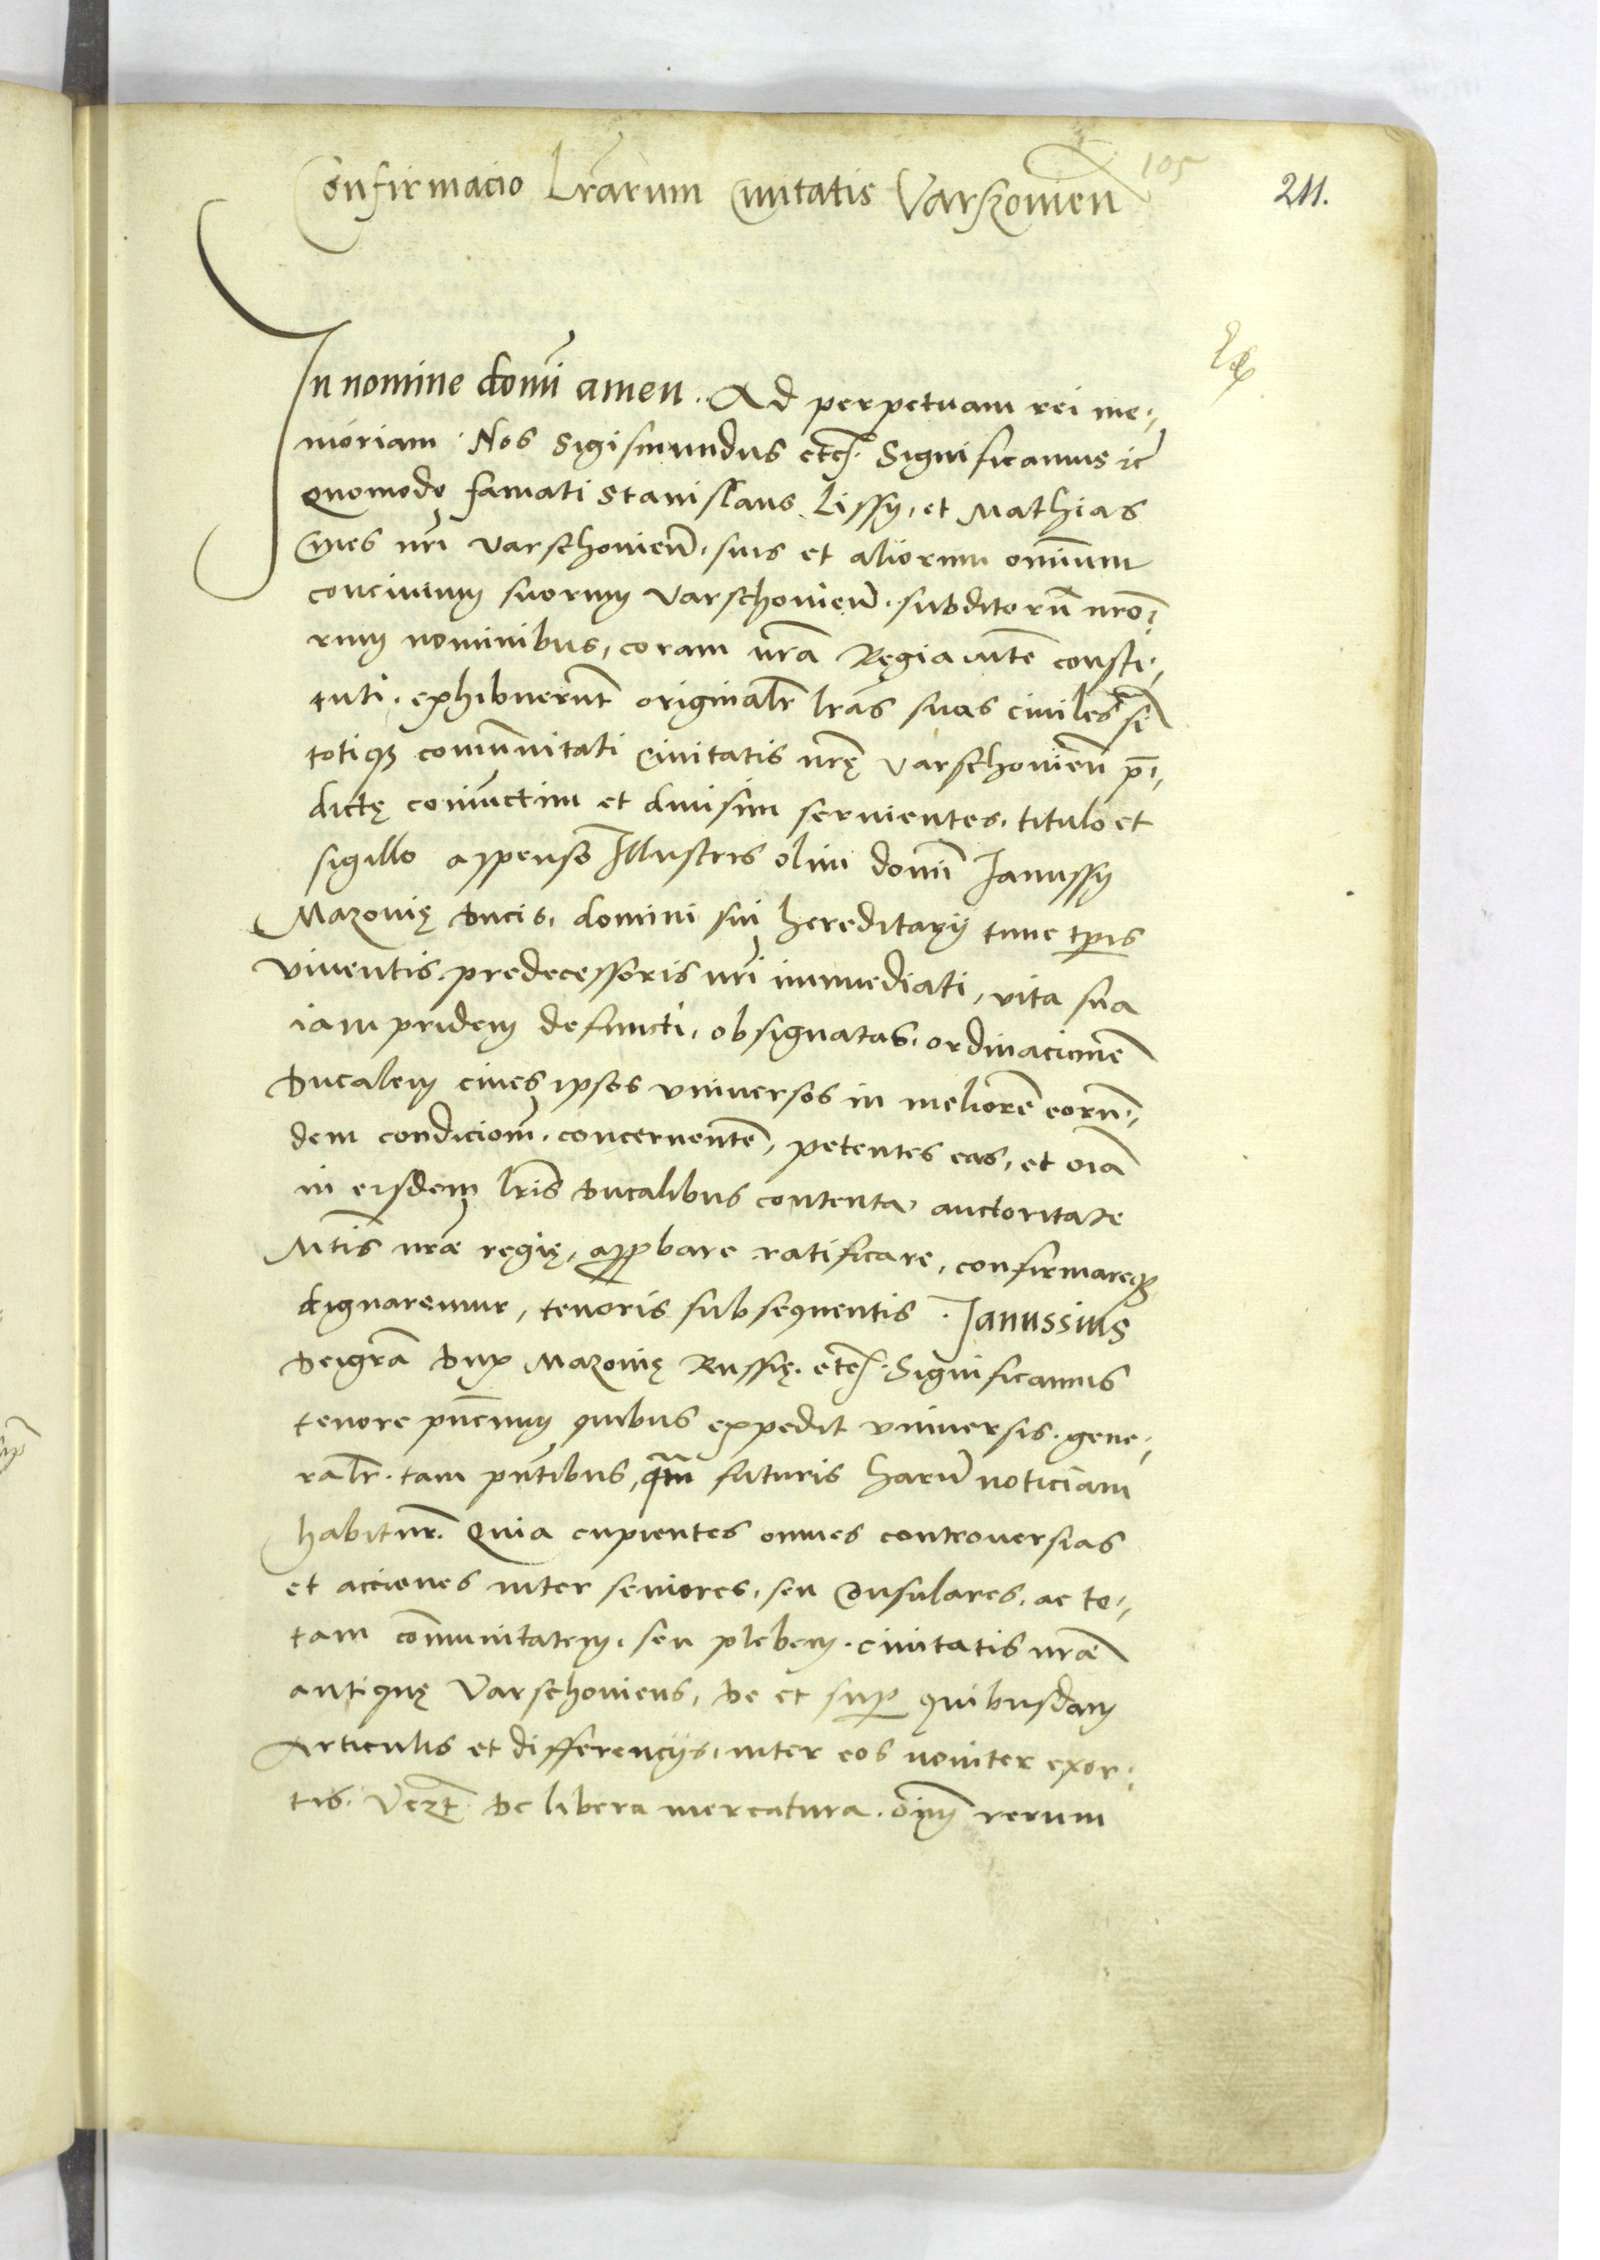 105
Confirmacio Lrarum Civitatis Varszovien
211.
In nomine domi amen. Ad perpetuam rei me-
moriam Nos Sigismundus etc. Significamus ic
Quomodo famati Stanislaus Lissy, et Mathias
Cives nri Varschovien. suis et aliorum omnium
concivium suorum Varschovien. subditoru nro-
rum nominibus, coram nra Regia Mte consti-
tuti. exhibuerunt originalr lras suas civiles si
totiq comunitati Civitatis nrę Varschovien p-
dictę coniunctim et divisim servientes. titulo et
sigillo appenso Illustris olim domi Janussy
Mazovię Ducis, domini sui hereditarij tunc tpis
viventis predecessoris nri immediati, vita sua
iam pridem defuncti, obsignatas. ordinacione
Ducalem cives ipsos universos in meliore eorun-
dem condiciom. concernente, petentes eas, et oia
in eisdem lris Ducalibus contenta auctoritate
Mtis nrae regię, approbare ratificare, confirmareq
dignaremur, tenoris subsequentis. Janussius
Dei gra Dux Mazovię Russię. etc. Significamus
tenore pncium quibus expedit universis. gene-
ralr. tam pntibus, qam futuris haru noticiam
habitur. Quia cupientes omnes controversias
et acciones inter seniores. seu Consulares. ac to-
tam comunitatem. seu plebem. civitatis nrae
antiquę Varschoviens, de et sup quibusdam
Articulis et differencijs, inter eos noviter exor-
tis. Vezt De libera mercatura. oim rerum